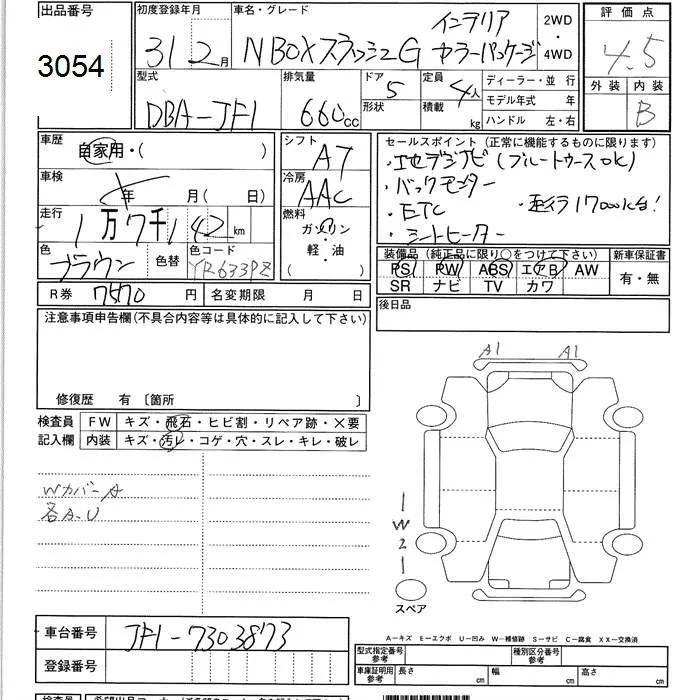 出品番号
3054
初度登録年月
31 2月
車名・グレード
N BOXスラッシュG インテリア カラーパッケージ
2WD
・
4WD
評価点
4.5
外装 内装
B
型式
DBA-JF1
排気量
660cc
ドア 5
形状
定員 4人
積載 kg
ディーラー・並行
モデル年式 年
ハンドル 左・右
車歴
自家用・( )
車検
年 月( 日)
走行
1万7千142km
色
ブラウン
色替
色コード
YR633PZ
シフト
AT
冷房
AAC
燃料
ガソリン
軽・油
( )
セールスポイント(正常に機能するものに限ります)
・地デジナビ(ブルートゥースOK)
・バックモニター
・ETC ・走行17000k台!
・シートヒーター
装備品(純正品に限り○をつけて下さい)
新車保証書
PS PW ABS エアB AW
SR ナビ TV カワ
有・無
R券 7570円
名変期限 月 日
後日品
注意事項申告欄(不具合内容等は具体的に記入して下さい)
修復歴 有 〔箇所 〕
検査員
記入欄
FW キズ・飛石・ヒビ割・リペア跡・×要
内装 キズ・汚レ・コゲ・穴・スレ・キレ・破レ
WカバーA
各A.U
A1 A1
W2
スペア
車台番号
JF1-7303873
登録番号
A-キズ E-エクボ U-凹み W-補修跡 S-サビ C-腐食 XX-交換済
型式指定番号
参考
種別区分番号
参考
車庫証明用
参考
長さ cm
幅 cm
高さ cm
検査員